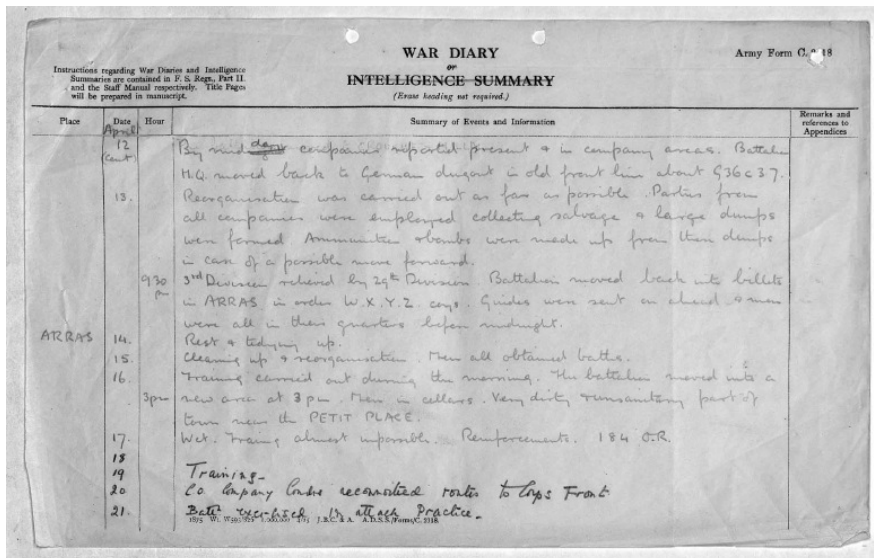 WAR DIARY
or
INTELLIGENCE SUMMARY
(Erase heading not required.)
Army Form C. 2118
Instructions regarding War Diaries and Intelligence
Summaries are contained in F. S. Regs., Part II.
and the Staff Manual respectively. Title Pages
will be prepared in manuscript.
Place Date Hour Summary of Events and Information Remarks and
references to
Appendices
April
12 By midday companies reported present & in company areas. Battalion
(cont) H.Q. moved back to German dugout in old front line about G36c37.
13. Reorganisation was carried out as far as possible. Parties from
all companies were employed collecting salvage & large dumps
were formed. Ammunition & bombs were made up from these dumps
in case of a possible move forward.
9.30 3rd Division relieved by 29th Division. Battalion moved back into billets
pm in ARRAS in order W.X.Y.Z coys. Guides were sent on ahead & men
were all in their quarters before midnight.
ARRAS 14. Rest & tidying up.
15. Cleaning up & reorganisation. Men all obtained baths.
16. Training carried out during the morning. The battalion moved into a
3pm new area at 3 pm. Men in cellars. Very dirty & unsanitary part of
town near the PETIT PLACE.
17. Wet. Traing almost impossible. Reinforcements. 184 O.R.
18
19 Training.
20 Co. Company reconnoitred routes to Corps Front
21. Battn exercised in attack Practice.
J.B.C. & A. A.D.S.S./Forms/C. 2118.